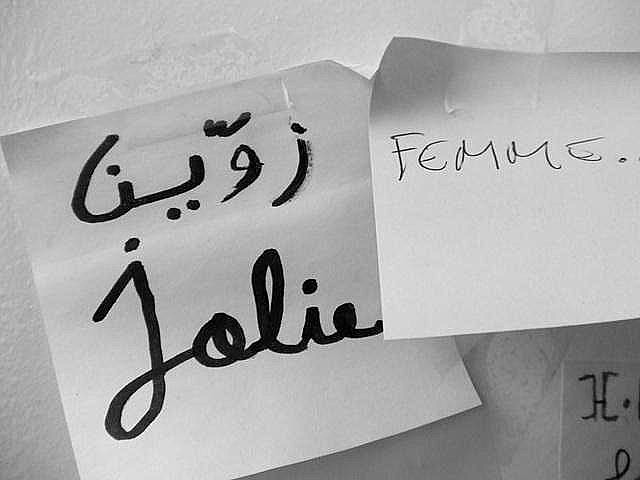 زوّينا
Jolie
FEMME..